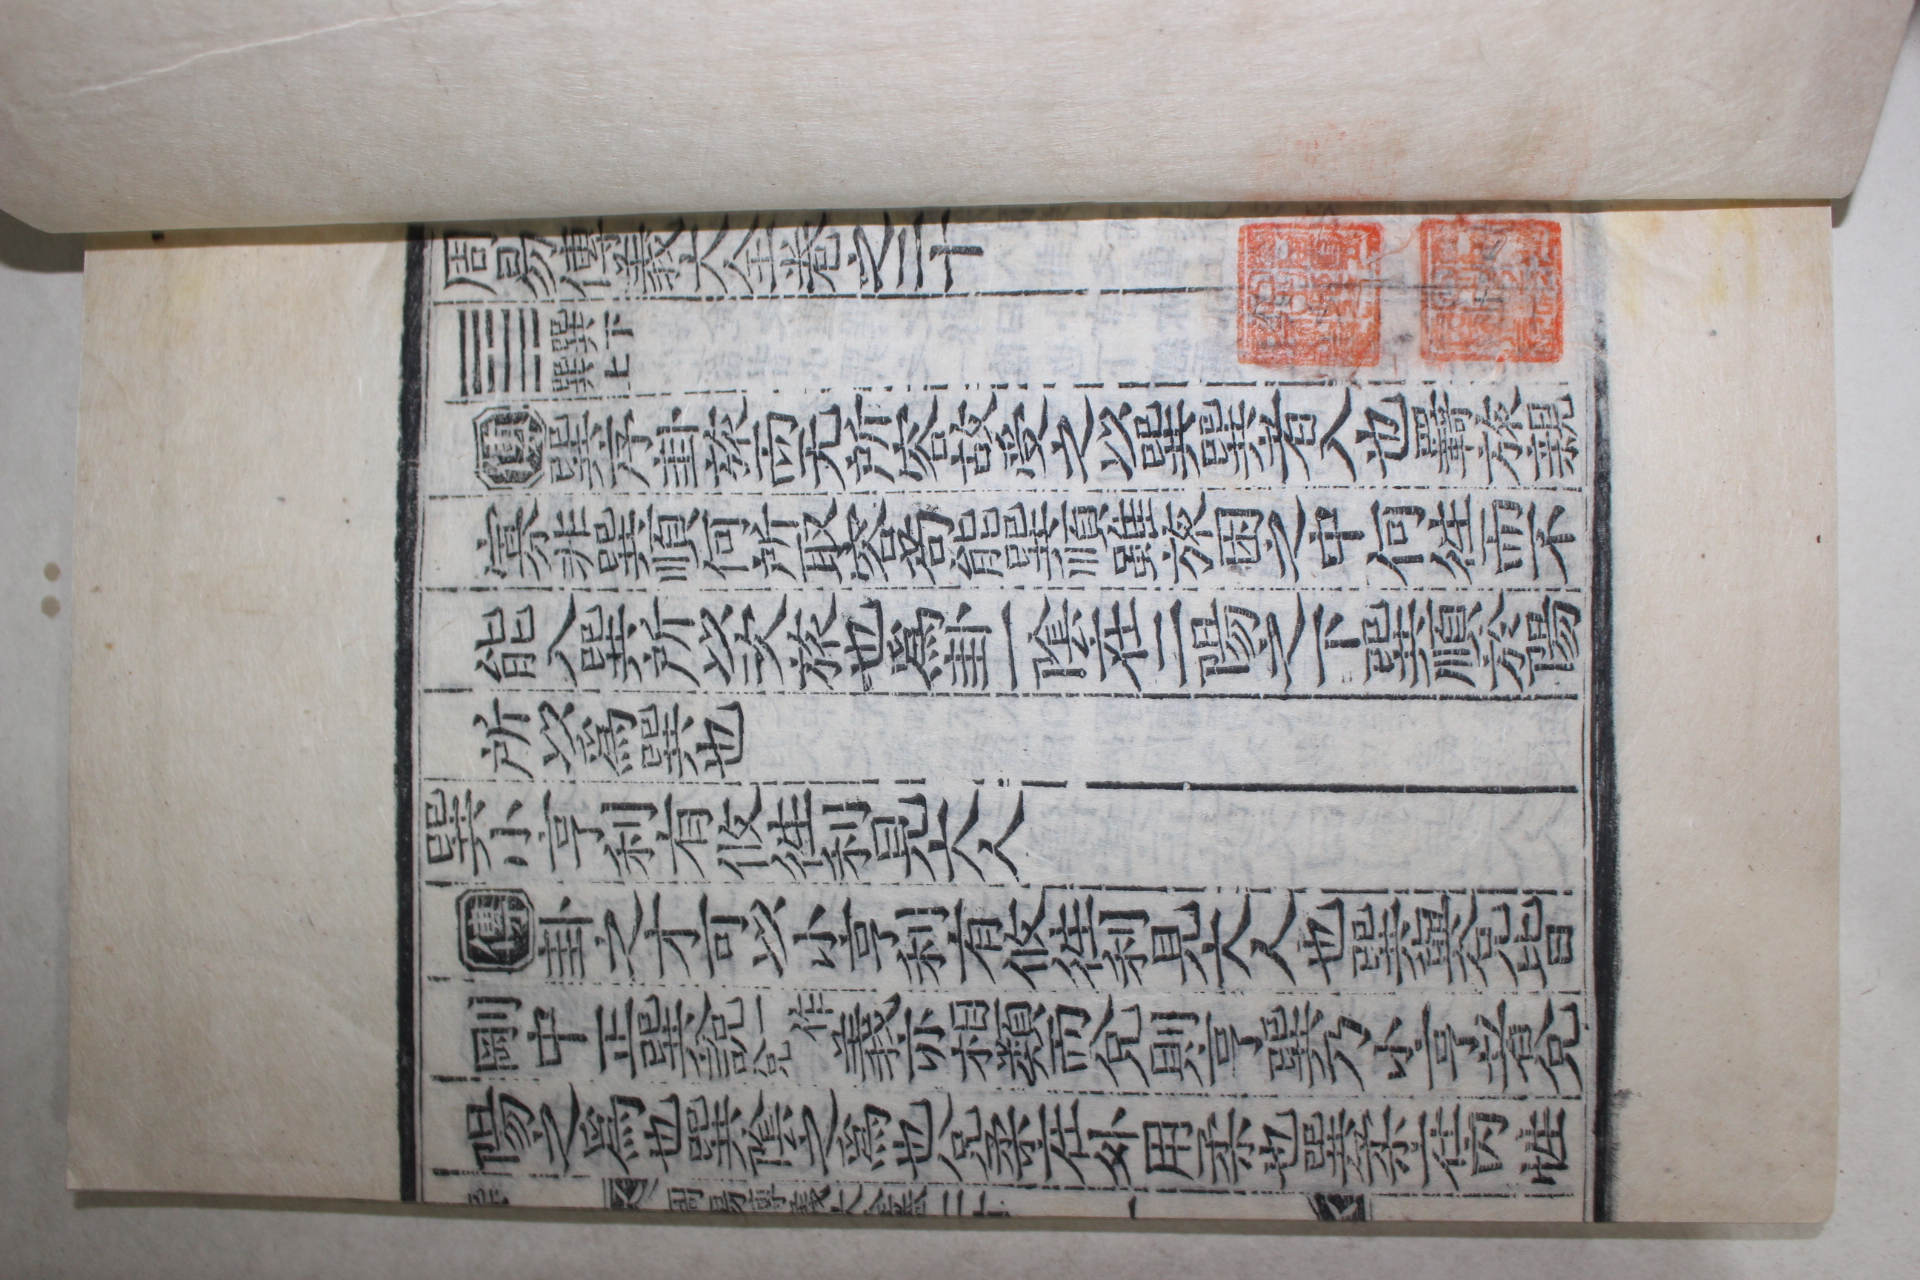 周易傳義大全卷之二十
巽下
巽上
傳巽序卦旅而无所容故受之以巽巽者入也羈旅親
寡非巽順何所取容苟能巽順雖旅困之中何徃而不
能入巽所以次旅也爲卦一陰在二陽之下巽順於陽
所以爲巽也
巽小亨利有攸徃利見大人
傳卦之才可以小亨利有攸徃利見大人也巽與兌皆
剛中正巽說一作兌義亦相類而兌則亨巽乃小亨者兌
陽之爲也巽陰之爲也兌柔在外用柔也巽柔在內性
周易傳義大全卷二十 一